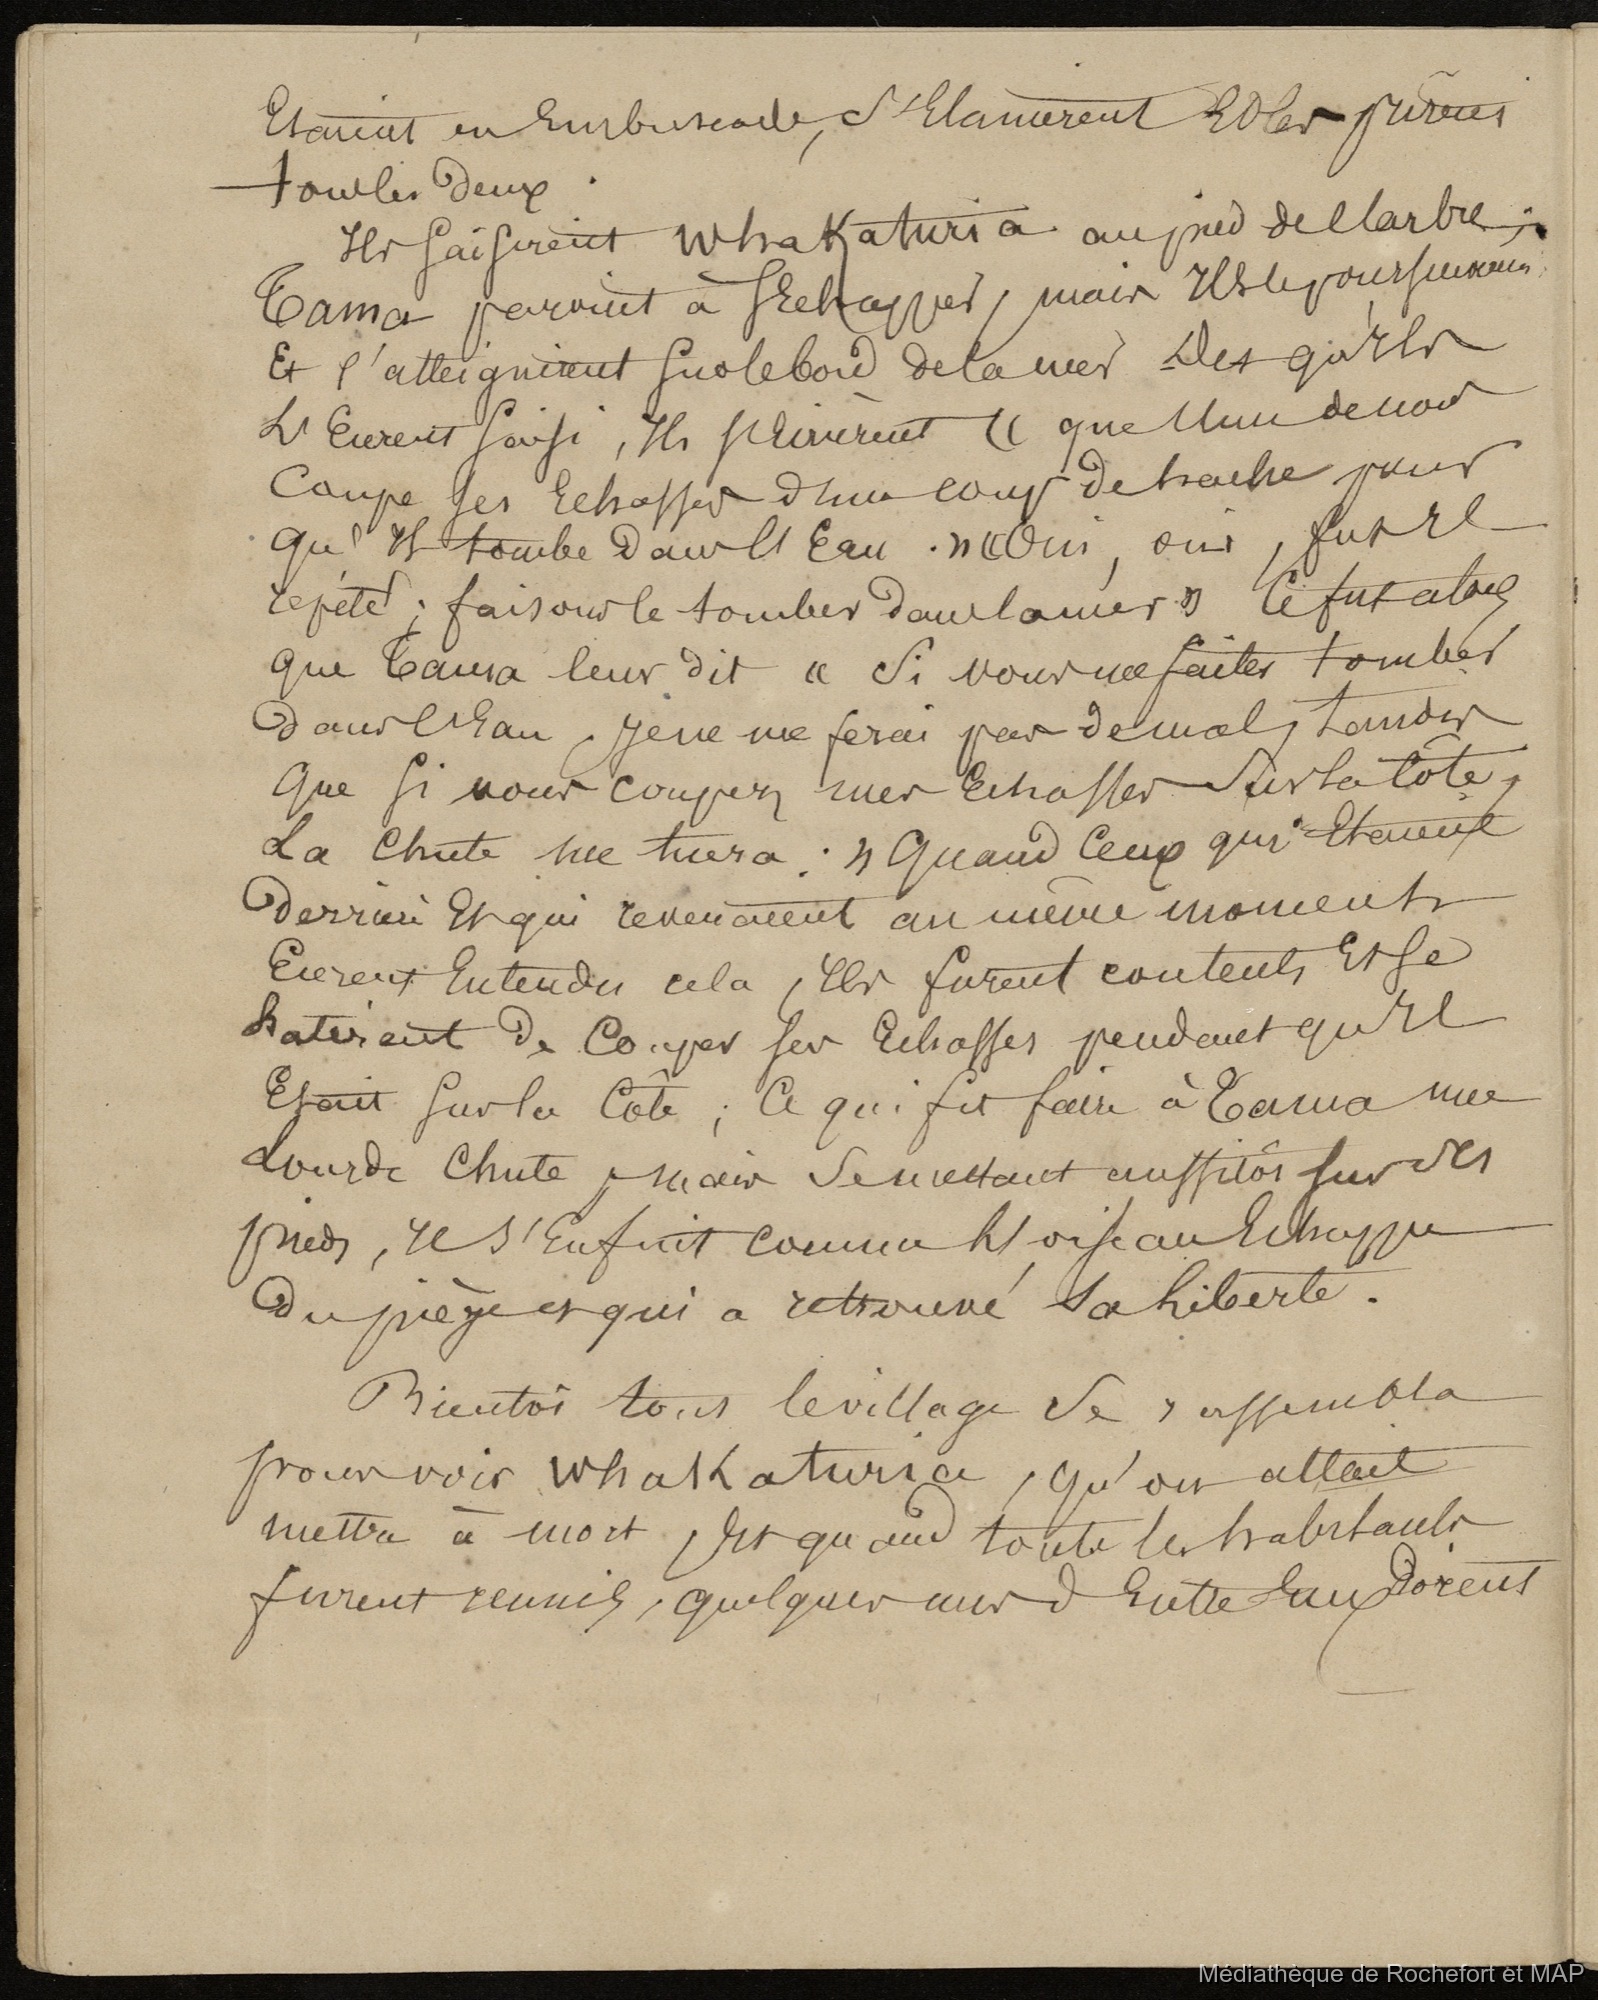 Etaient en Embuscade, s'Elancèrent Et les prirent
tous les Deux.
Ils saisirent Whakaturia au pied de l'arbre;
Tama parvint à s'Echapper, mais Ils le poursuivirent
Et l'atteignirent sur le bord de la mer Dès qu'Ils
L'Eurent saisi, Ils s'Ecrièrent « que l'un de nous
Coupe ses Echasses d'un coup de hache pour
qu'Il tombe Dans l'Eau. » « Oui, oui, fut Il
répété; faisons le tomber Dans la mer » Ce fut alors
que Tama leur dit « Si vous me faites tomber
Dans l'Eau, je ne me ferai pas de mal, tandis
Que si vous coupez mes Echasses Sur la Côte,
La Chute me tuera. » Quand Ceux qui Etaient
Derrière Et qui revenaient au même moment
Eurent Entendu cela, Ils furent contents Et se
hatèrent De Couper ses Echasses pendant qu'Il
Etait sur la Côte; Ce qui fit faire à Tama une
Lourde Chute, mais Se mettant aussitôt sur ses
pieds, Il s'Enfuit comme l'oiseau Echappé
Du piège et qui a retrouvé sa Liberté.
Bientôt tout le village Se rassembla
pour voir Whakaturia, qu'on allait
mettre à mort, Et quand tous les habitants
furent réunis, quelques uns d'Entre Eux Dirent
Médiathèque de Rochefort et MAP